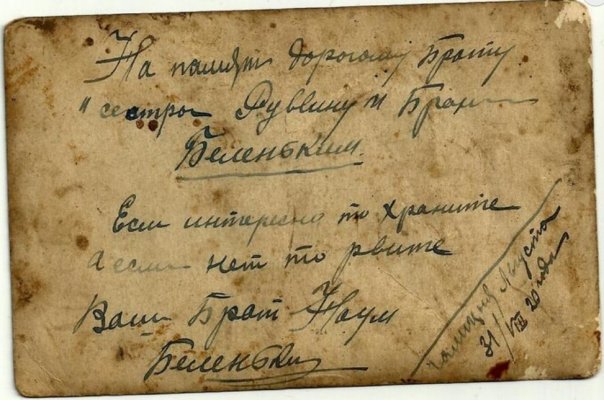 На память дорогому Брату
и сестре Рувину и Брахе
Беленьким.
Если интересно то храните
а если нет то рвите
Ваш Брат Наум
Беленький
Августа
31/VIII 20 года